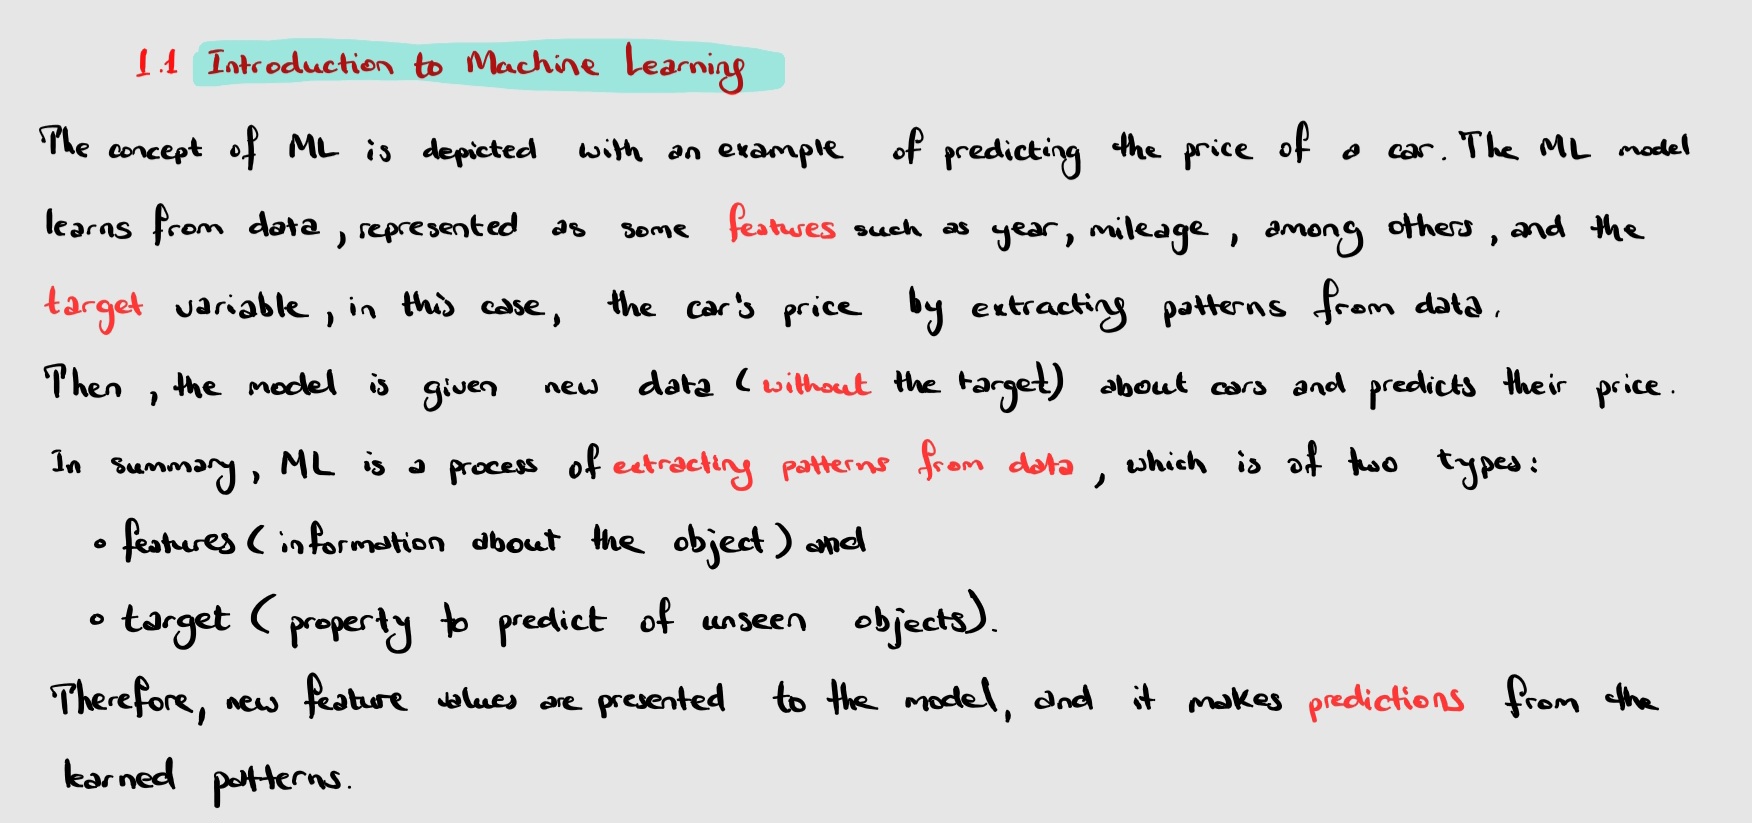 1.1 Introduction to Machine Learning
The concept of ML is depicted with an example of predicting the price of a car. The ML model
learns from data, represented as some features such as year, mileage, among others, and the
target variable, in this case, the car's price by extracting patterns from data.
Then, the model is given new data (without the target) about cars and predicts their price.
In summary, ML is a process of extracting patterns from data, which is of two types:
• features (information about the object) and
• target (property to predict of unseen objects).
Therefore, new feature values are presented to the model, and it makes predictions from the
learned patterns.